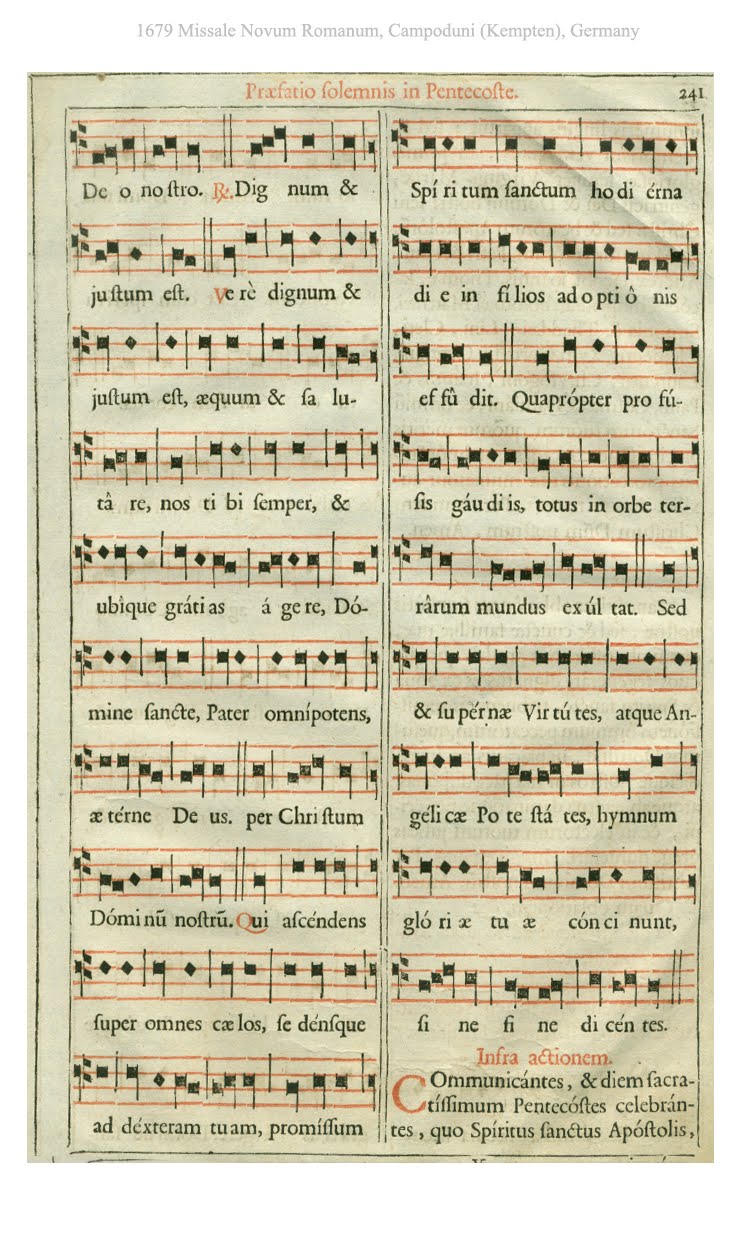 1679 Missale Novum Romanum, Campoduni (Kempten), Germany
Præfatio ſolemnis in Pentecoſte.
241
De o no ſtro. ℟. Dig num &
ju ſtum eſt. Ve rè dignum &
juſtum eſt, æquum & ſa lu-
tâ re, nos ti bi ſemper, &
ubìque gráti as á ge re, Dó-
mine ſancte, Pater omnípotens,
æ térne De us. per Chri ſtum
Dómi nũ noſtrũ. Qui aſcéndens
ſuper omnes cæ los, ſe dénſque
ad déxteram tu am, promíſſum
Spí ri tum ſanctum ho di érna
di e in fí lios ad o pti ô nis
ef fû dit. Quaprópter pro fú-
ſis gáu di is, totus in orbe ter-
rârum mundus ex úl tat. Sed
& ſu pérnæ Vir tú tes, atque An-
géli cæ Po te ſtá tes, hymnum
gló ri æ tu æ cón ci nunt,
ſi ne fi ne di cén tes.
Infra actionem.
COmmunicántes, & diem ſacra-
tíſſimum Pentecóſtes celebrán-
tes, quo Spíritus ſanctus Apóſtolis,